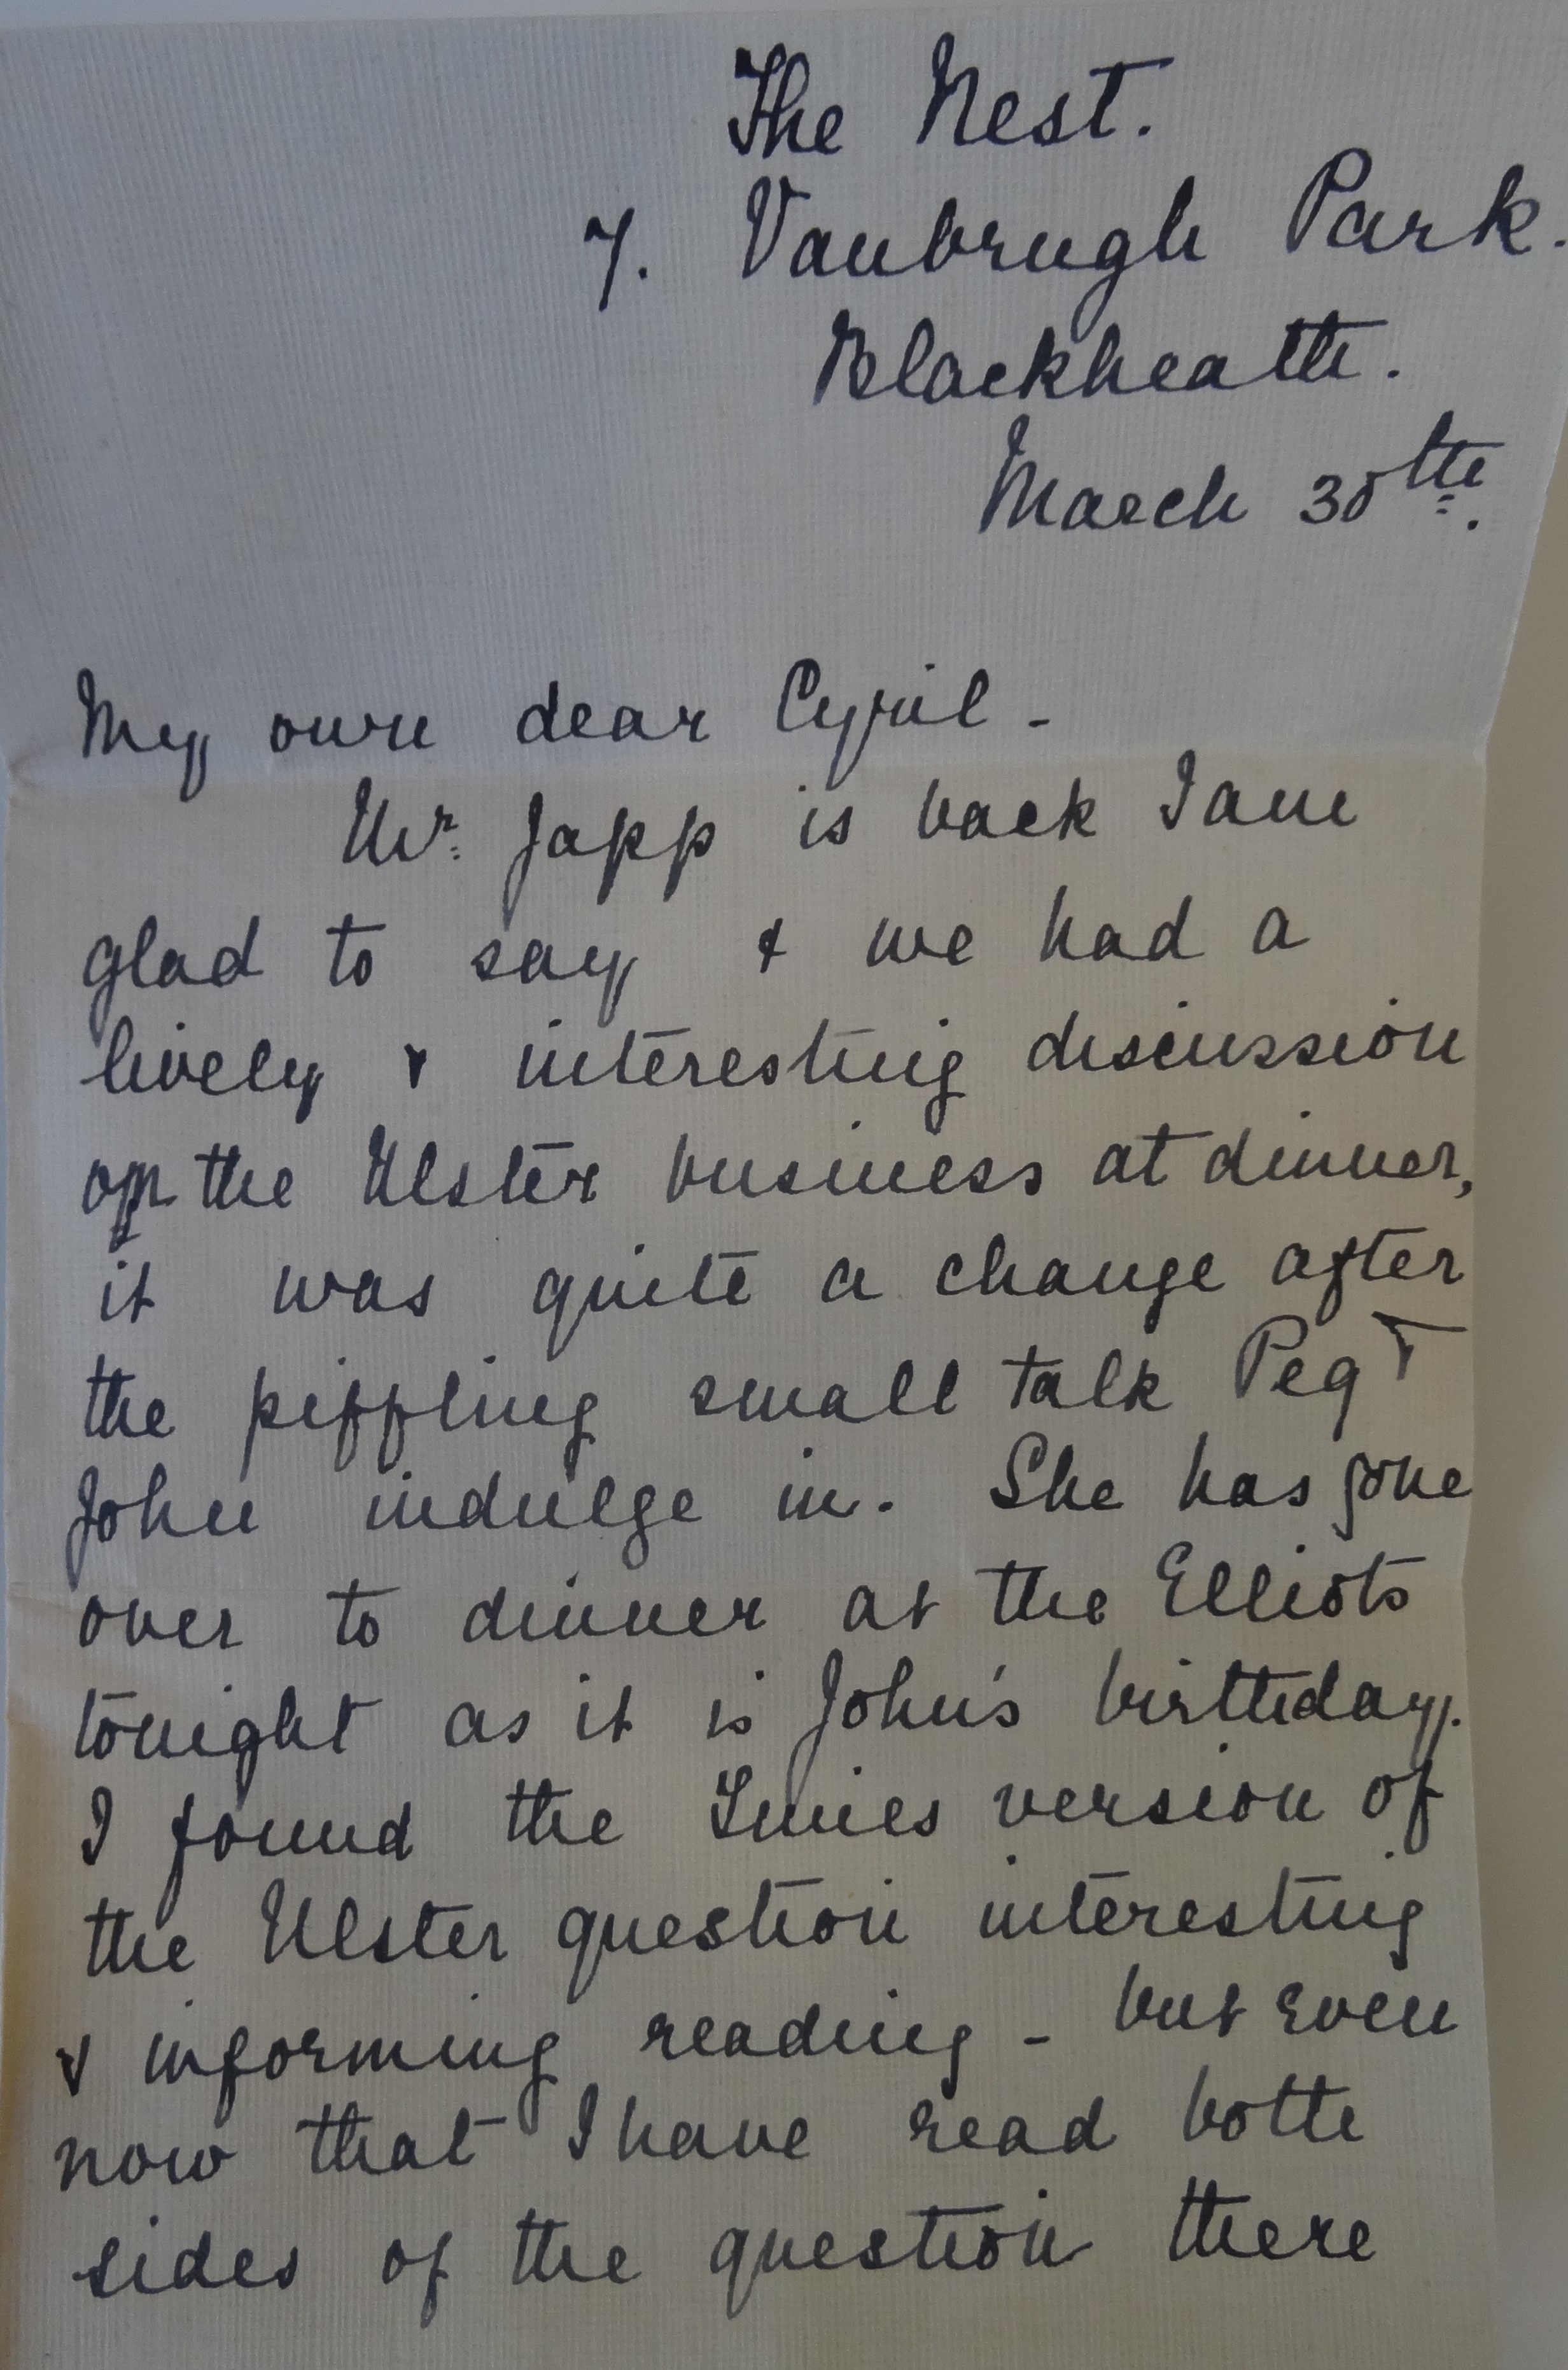 The Nest.
7. Vanbrugh Park.
Blackheath.
March 30th.
My own dear Cyril -
Mr. Japp is back I am
glad to say & we had a
lively & interesting discussion
on the Ulster business at dinner,
it was quite a change after
the piffling small talk Peg &
John indulge in. She has gone
over to dinner at the Elliots
tonight as it is John's birthday.
I found the Times version of
the Ulster question interesting
& informing reading - but even
now that I have read both
sides of the question there